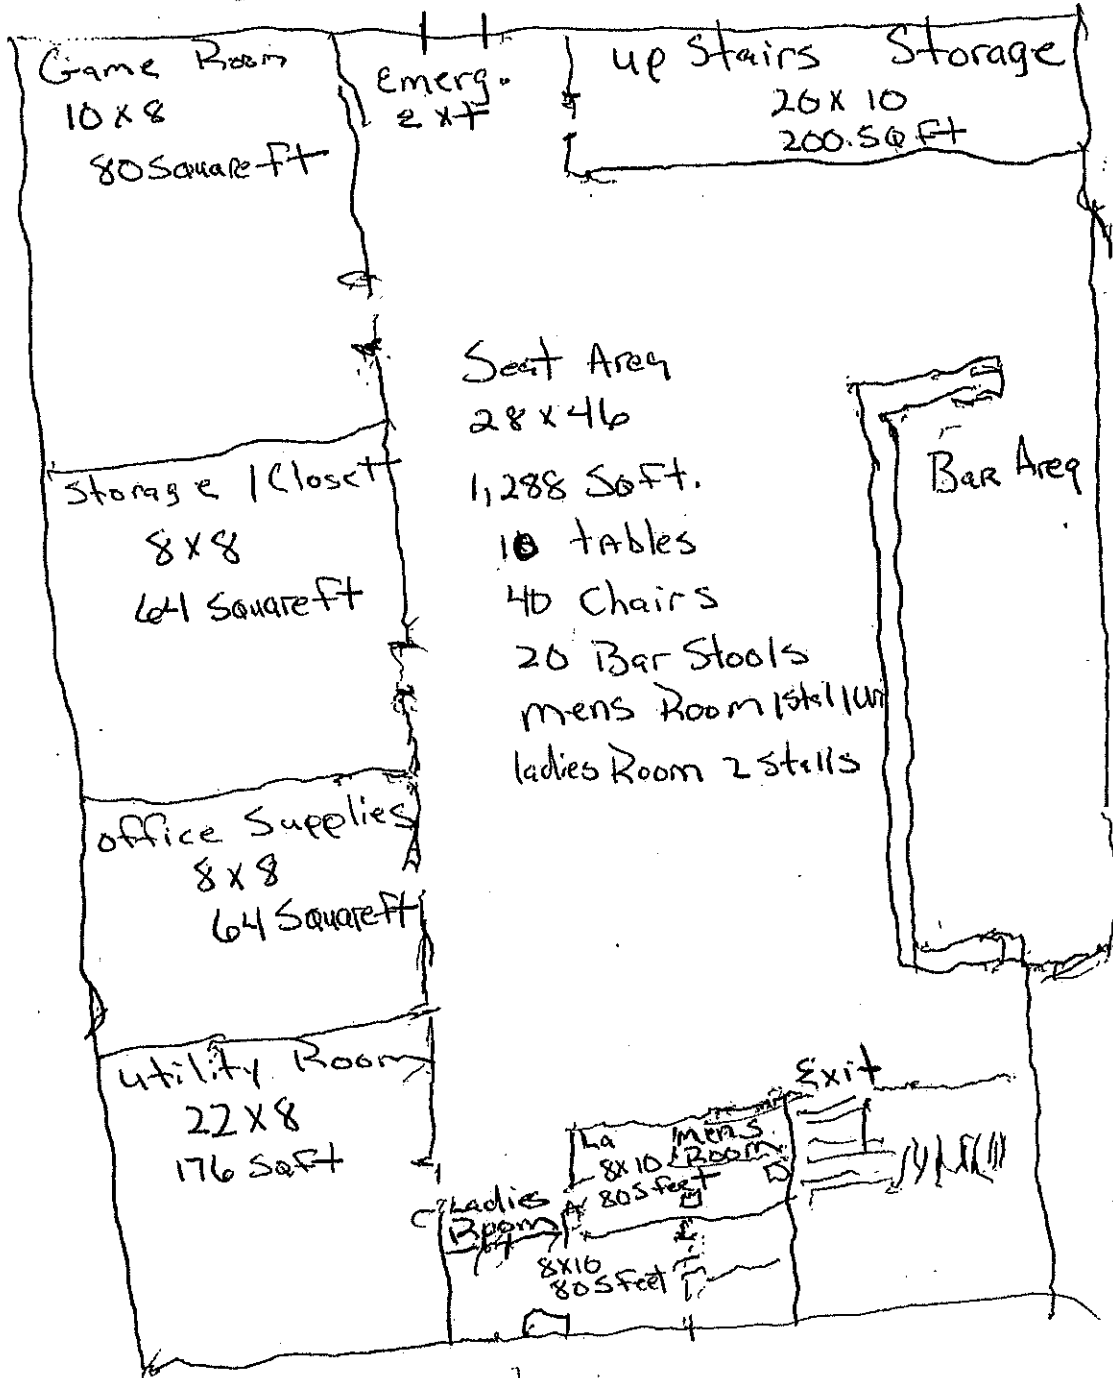 Game Room
10 x 8
80 Square ft
Emerg.
up Stairs Storage
20 x 10
200.SQ Ft
Seat Area
28 x 46
1,288 SqFt.
10 tables
40 Chairs
20 Bar Stools
mens Room 1 Stall 1 Ur
ladies Room 2 Stalls
Bar Area
Storage / Closett
8 x 8
64 Square ft
office Supplies
8 x 8
64 Square ft
utility Room
22 x 8
176 SqFt
Exit
La
mens
Room
8x10
80 S feet
Ladies
Room
8x10
80 S feet